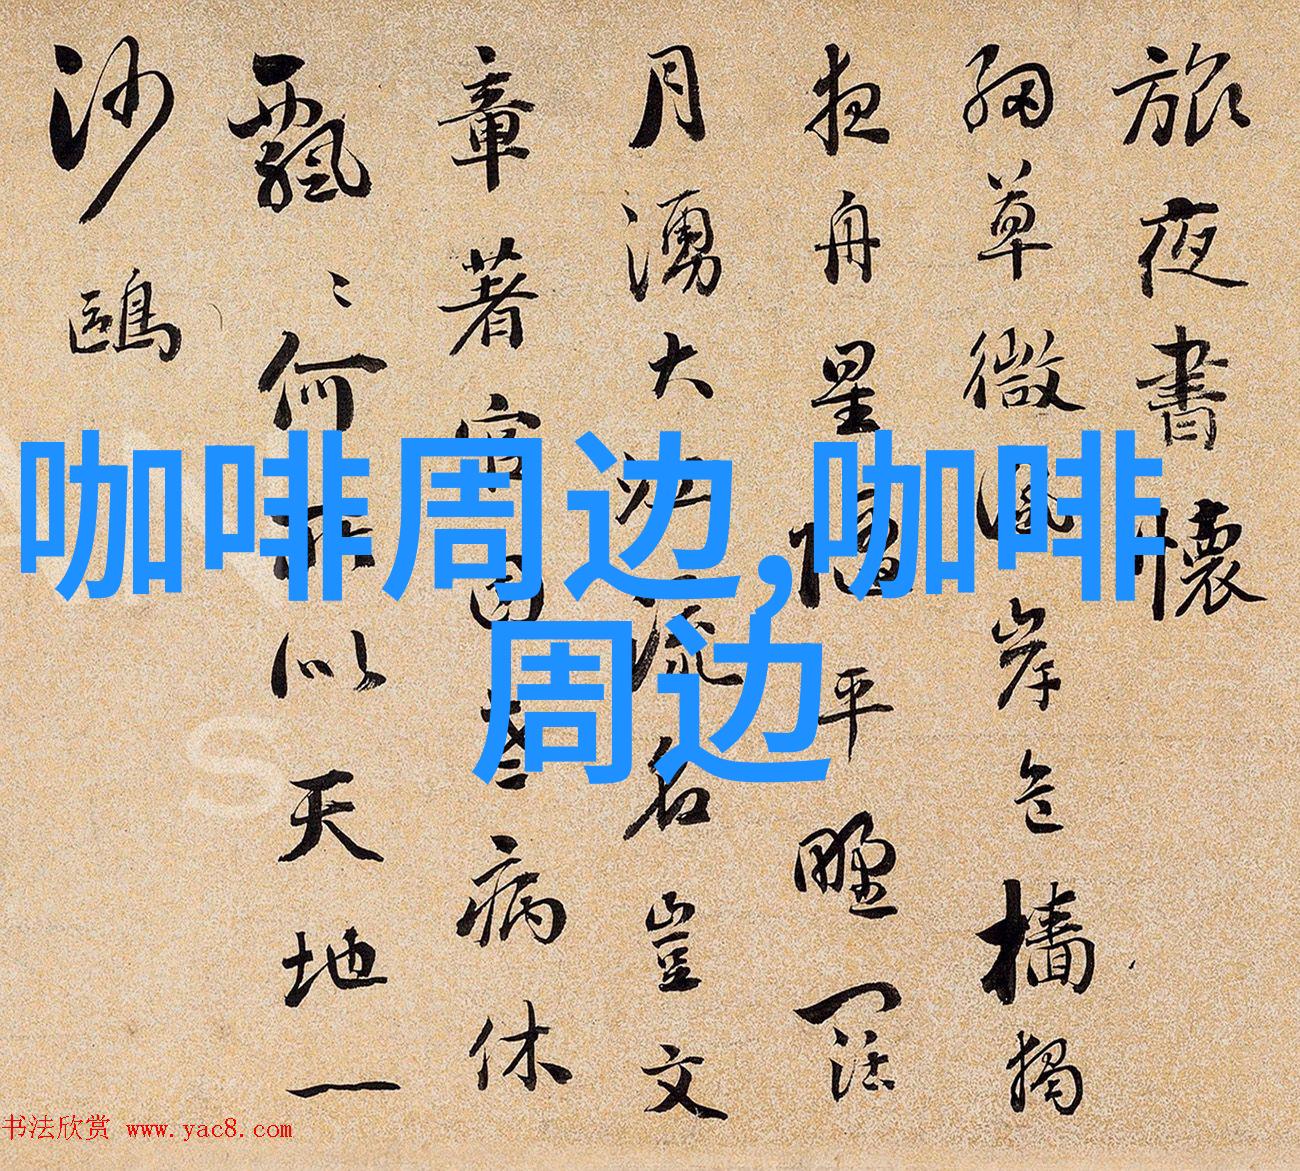 旅夜書懷
細草微風岸危檣獨
夜舟星隨平野闊
月湧大江流名豈文
章著官因老病休
飄〻何所似天地一
沙鷗
咖啡周边,咖啡
周边
书法欣赏 www.yac8.com